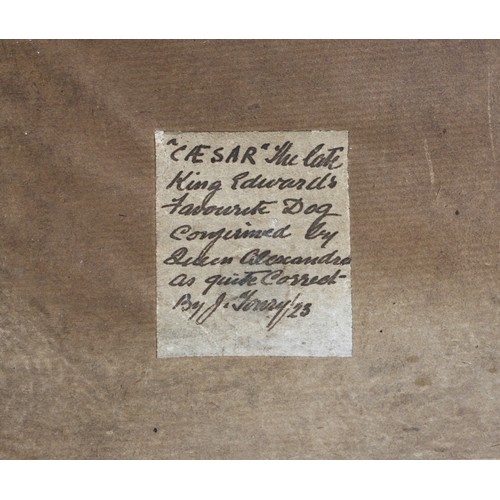 "CÆSAR" The late
King Edwards
Favourite Dog
Confirmed by
Queen Alexandra
as quite Correct
By J.